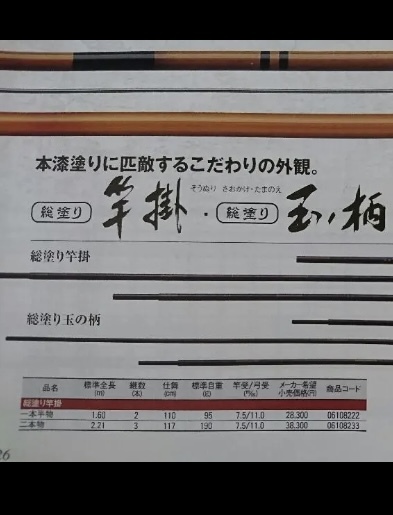 本漆塗りに匹敵するこだわりの外観。
そうぬり さおかけ・たまのえ
総塗り 竿掛・総塗り 玉ノ柄
総塗り竿掛
総塗り玉の柄
品名 標準全長(m) 継数(本) 仕舞(cm) 標準自重(g) 竿受/弓受(㍉) メーカー希望小売価格(円) 商品コード
総塗り竿掛
一本半物 1.60 2 110 95 7.5/11.0 28,300 06108222
二本物 2.21 3 117 190 7.5/11.0 38,300 06108233
26